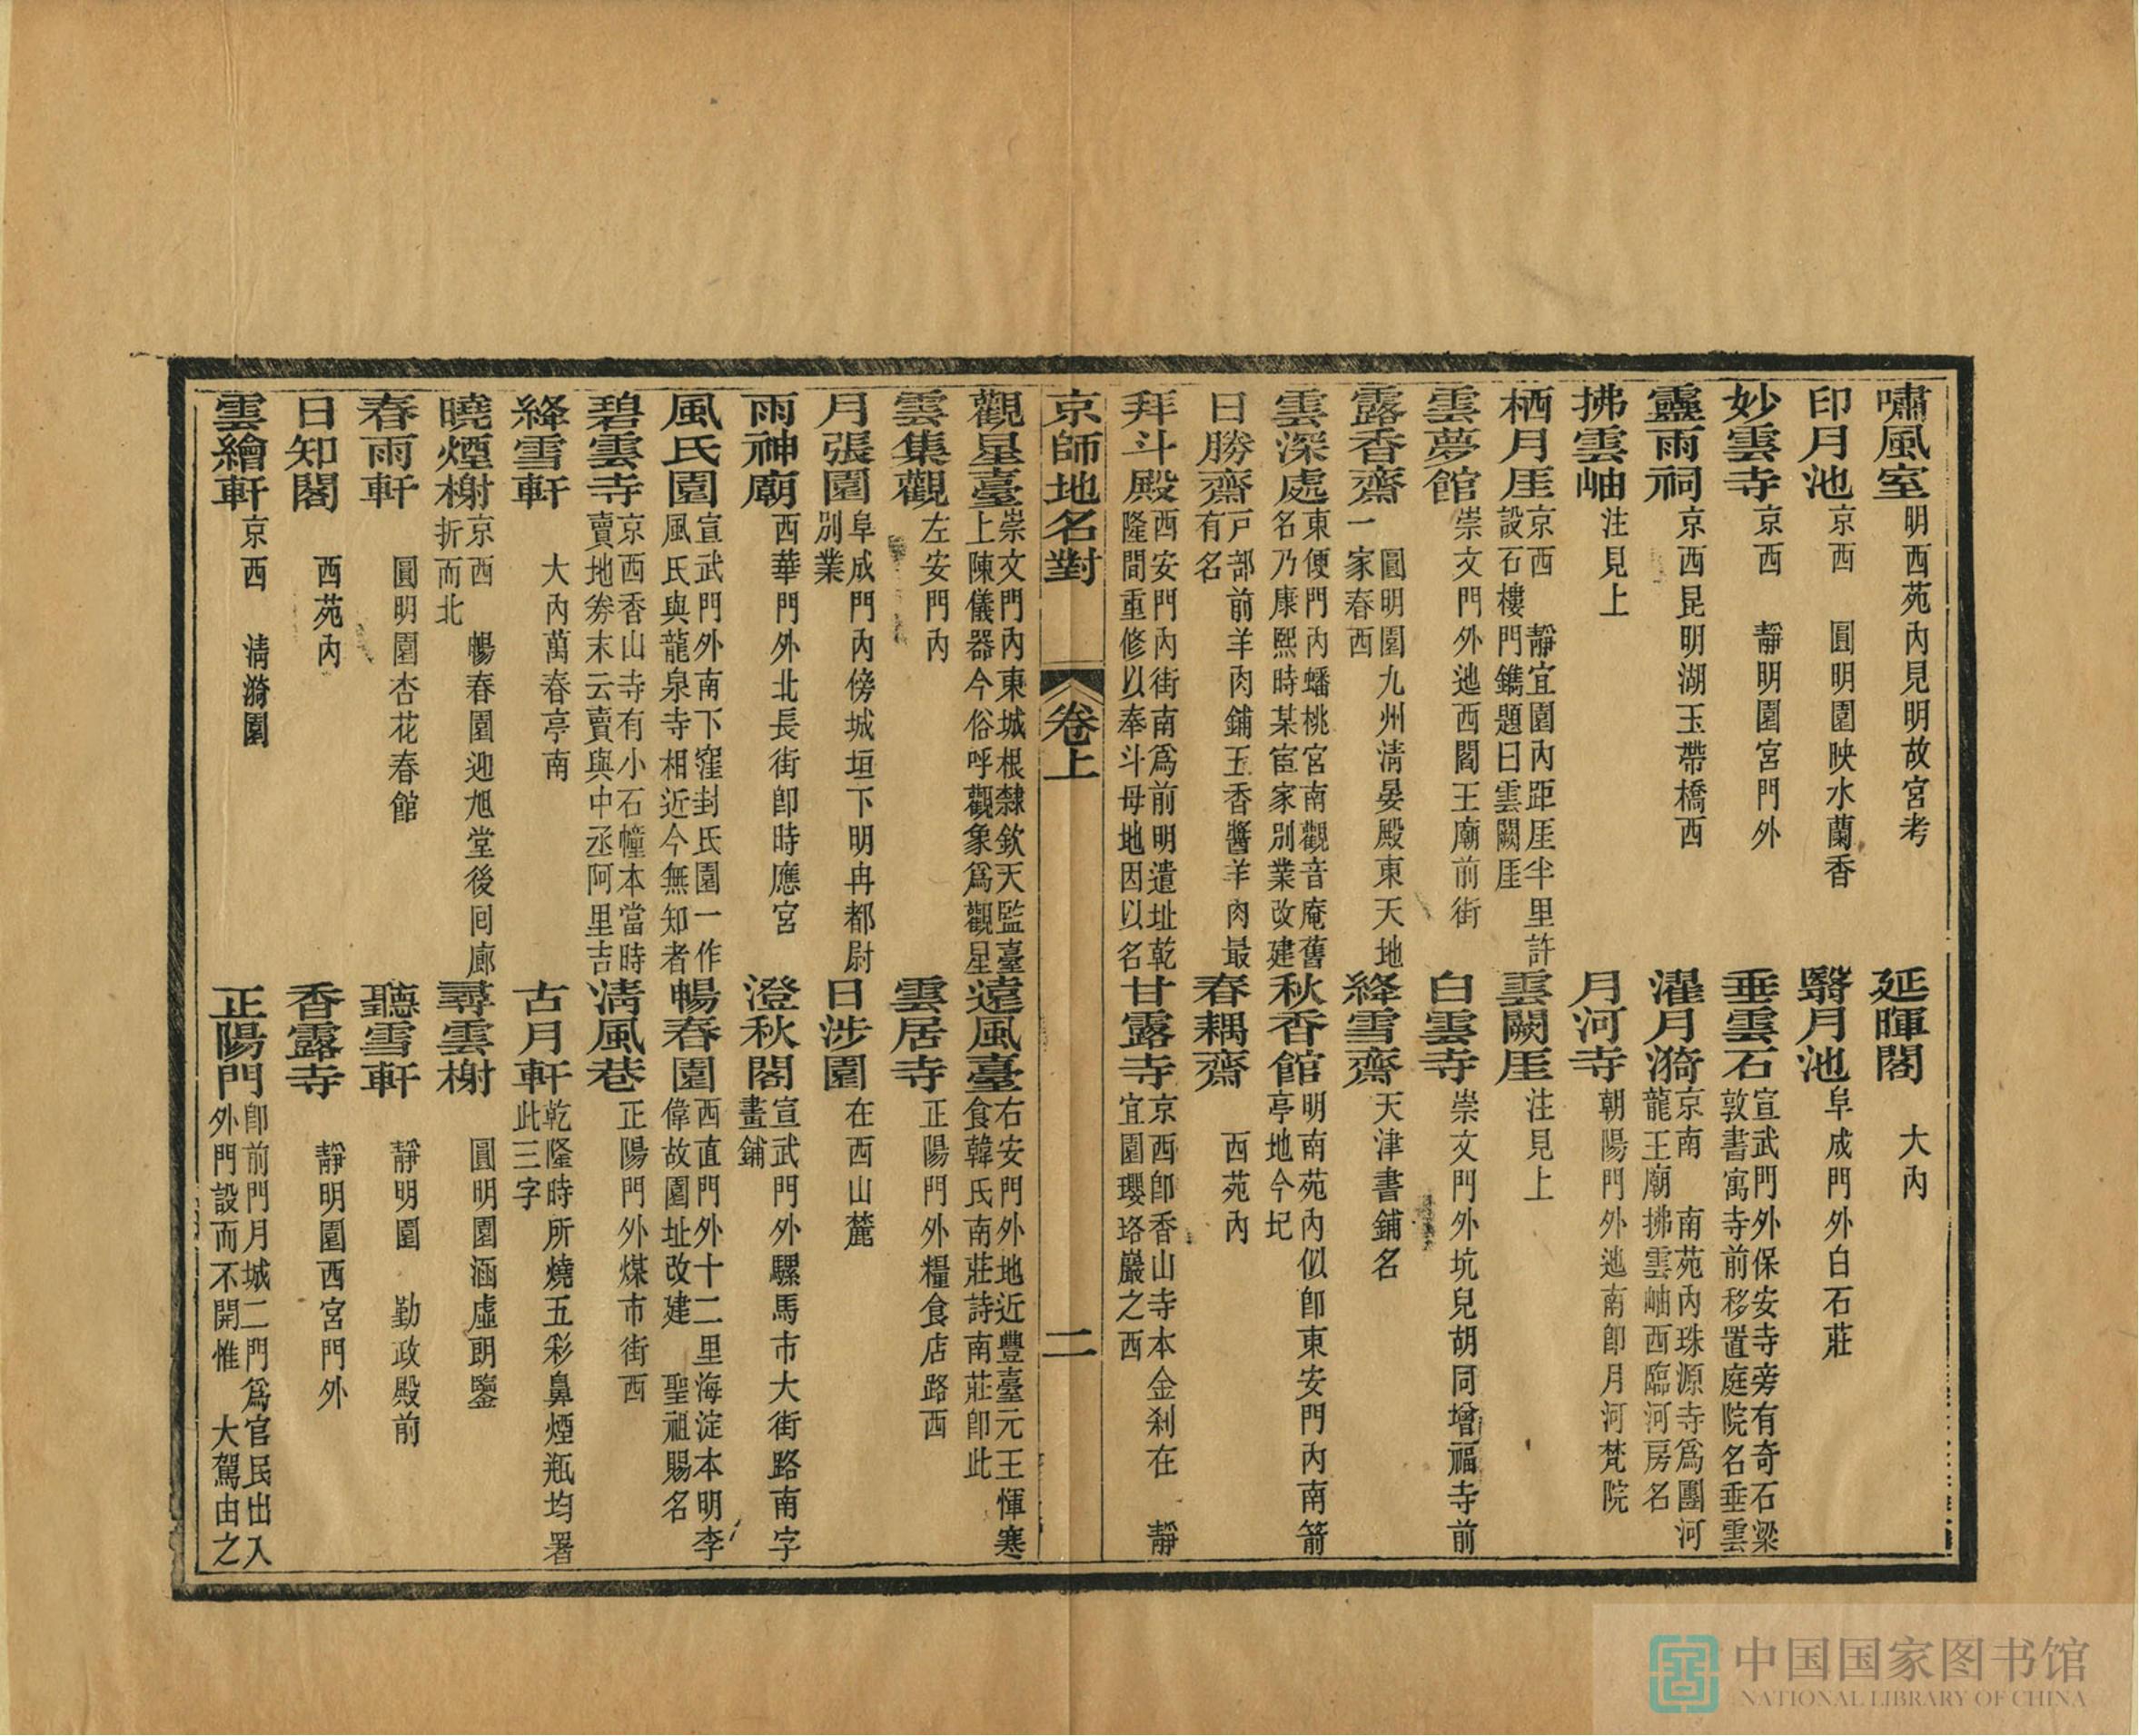 嘯風室明西苑內見明故宮考　延暉閣大內
印月池京西　圓明園映水蘭香　翳月池阜成門外白石莊
妙雲寺京西　靜明園宮門外　垂雲石宣武門外保安寺旁有奇石梁敦書寓寺前移置庭院名垂雲
靈雨祠京西昆明湖玉帶橋西　濯月漪京南　南苑內珠源寺爲團河龍王廟拂雲岫西臨河房名
拂雲岫注見上　月河寺朝陽門外迤南卽月河梵院
栖月厓京西　靜宜園內距厓半里許設石樓門鐫題曰雲闕厓　雲闕厓注見上
雲夢館崇文門外迤西閻王廟前街　白雲寺崇文門外坑兒胡同增福寺前
露香齋圓明園九州清晏殿東天地一家春西　絳雪齋天津書鋪名
雲深處東便門內蟠桃宮南觀音庵舊名乃康熙時某宦家別業改建　秋香館明南苑內似卽東安門內南箭亭地今圮
日勝齋戶部前羊肉鋪五香醬羊肉最有名　春耦齋西苑內
拜斗殿西安門內街南爲前明遺址乾隆間重修以奉斗母地因以名　甘露寺京西卽香山寺本金刹在　靜宜園瓔珞巖之西
京師地名對　卷上　二
觀星臺崇文門內東城根隸欽天監臺上陳儀器今俗呼觀象爲觀星　遠風臺右安門外地近豐臺元王惲寒食韓氏南莊詩南莊卽此
雲集觀左安門內　雲居寺正陽門外糧食店路西
月張園阜成門內傍城垣下明冉都尉別業　日涉園在西山麓
雨神廟西華門外北長街卽時應宮　澄秋閣宣武門外騾馬市大街路南字畫鋪
風氏園宣武門外南下窪封氏園一作風氏與龍泉寺相近今無知者　暢春園西直門外十二里海淀本明李偉故園址改建　聖祖賜名
碧雲寺京西香山寺有小石幢本當時賣地劵末云賣與中丞阿里吉　清風巷正陽門外煤市街西
絳雪軒大內萬春亭南　古月軒乾隆時所燒五彩鼻煙瓶均署此三字
曉煙榭京西　暢春園迎旭堂後囘廊折而北　尋雲榭圓明園涵虛朗鑒
春雨軒圓明園杏花春館　聽雪軒靜明園　勤政殿前
日知閣西苑內　香露寺靜明園西宮門外
雲繪軒京西　清漪園　正陽門卽前門月城二門爲官民出入外門設而不開惟　大駕由之
中国国家图书馆
NATIONAL LIBRARY OF CHINA